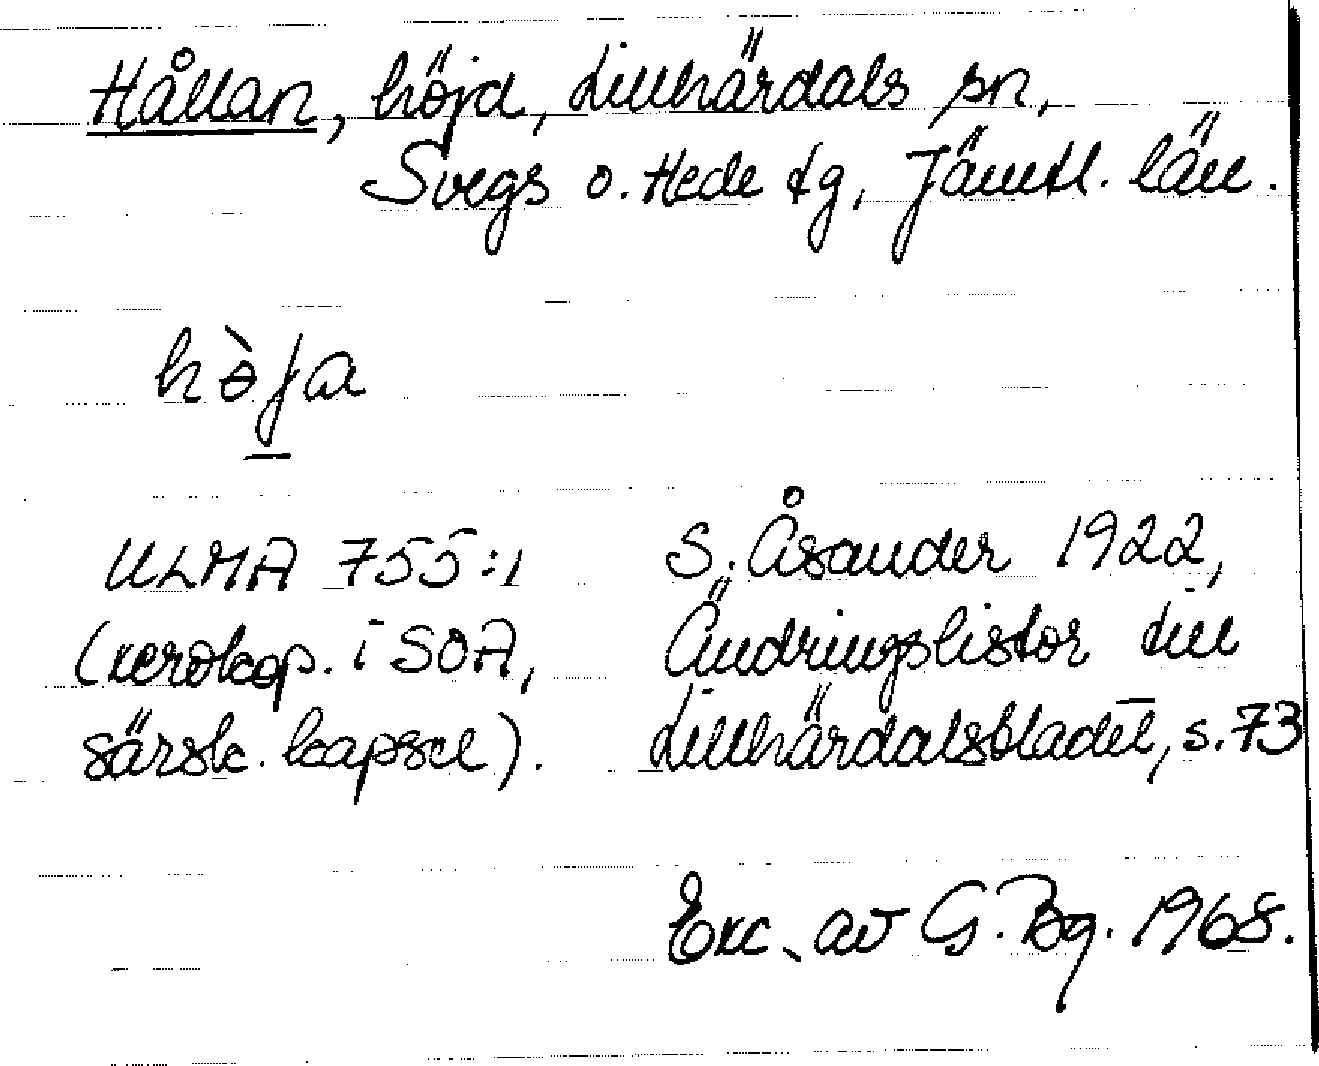 Hållan, höjd, Lillhärdals sn,
Svegs o. Hede tg, Jämtl. län.
ULMA 755:1
(xerokop. i SOA,
särsk. kapsel).
S. Åsander 1922,
Ändringslistor till
Lillhärdalsbladet, s. 73
Exc. av G. Bg. 1968.